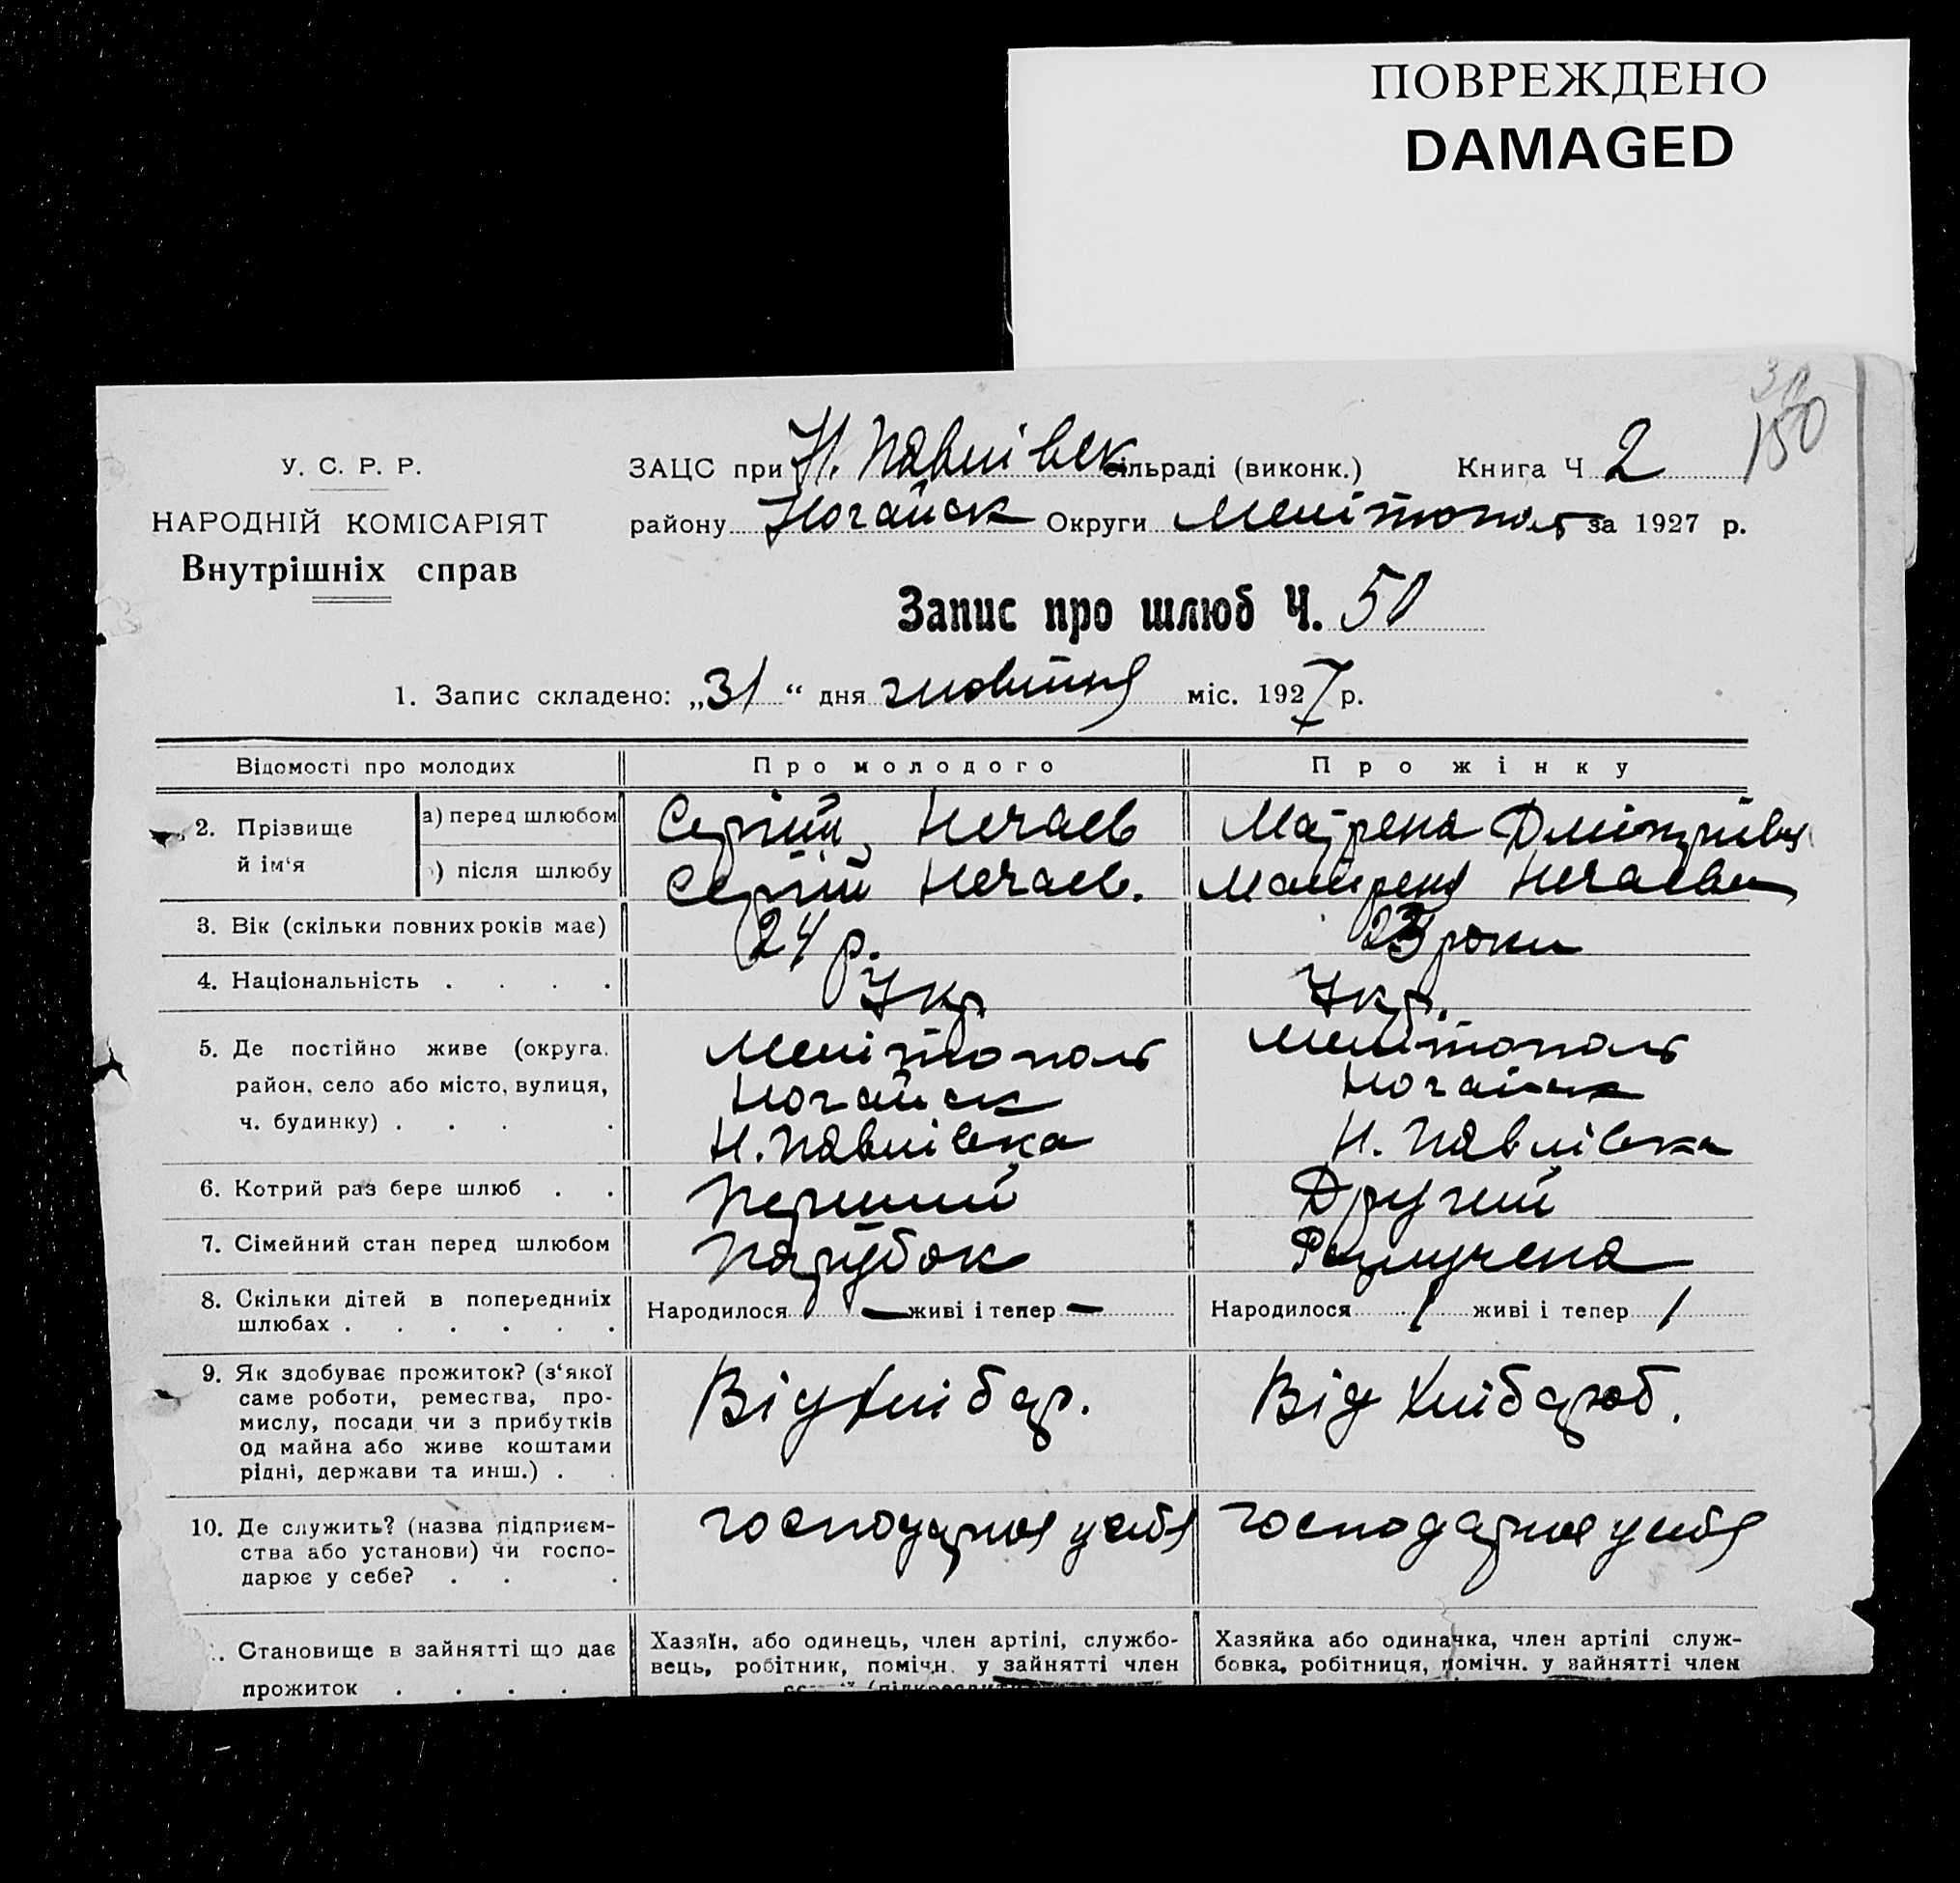 ПОВРЕЖДЕНО
DAMAGED
150
У. С. Р. Р.
НАРОДНІЙ КОМІСАРІЯТ
Внутрішніх справ
ЗАЦС при Н. Павлівск сільраді (виконк.) Книга Ч 2
району Ногайск Округи Мелітополь за 1927 р.
Запис про шлюб Ч. 50
1. Запис складено: „31“ дня жовтня міс. 1927 р.
Відомості про молодих Про молодого Про жінку
2. Прізвище й ім‘я
а) перед шлюбом Сергій Нечаев Матрена Дмітріева
) після шлюбу Сергій Нечаев. Матрена Нечаева
3. Вік (скільки повних років має) 24 р. 23 роки
4. Національність . . . . Укр Укр.
5. Де постійно живе (округа, район, село або місто, вулиця, ч. будинку) . . . .
Мелітополь Мелітополь
Ногайск Ногайск
Н. Павлівка Н. Павлівка
6. Котрий раз бере шлюб . . Перший Другий
7. Сімейний стан перед шлюбом Парубок Розлучена
8. Скільки дітей в попередніх шлюбах . . . . . .
Народилося — живі і тепер — Народилося 1 живі і тепер 1
9. Як здобуває прожиток? (з‘якої
саме роботи, ремества, про-
мислу, посади чи з прибутків
од майна або живе коштами
рідні, держави та инш.) . .
Від хлібор. Від хлібороб.
10. Де служить? (назва підприєм-
ства або установи) чи госпо-
дарює у себе? . . .
господарює у себя господарює у себя
. Становище в зайнятті що дає
прожиток . . . .
Хазяїн, або одинець, член артілі, службо-
вець, робітник, помічн. у зайнятті член
Хазяйка або одиначка, член артілі служ-
бовка, робітниця, помічн. у зайнятті член